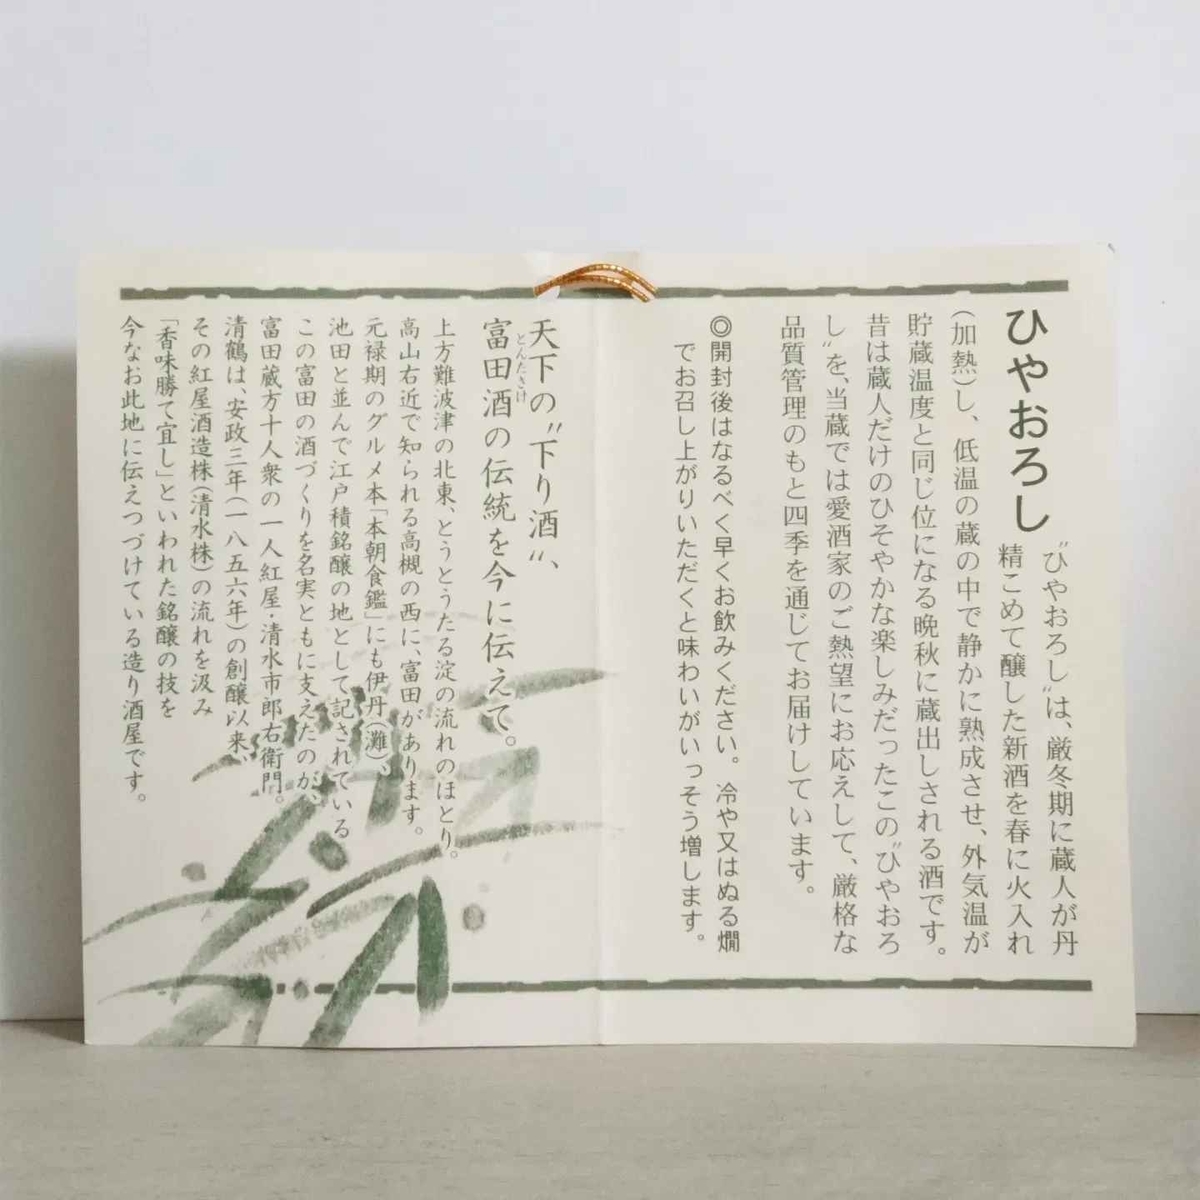 ひやおろし
〝ひやおろし〟は、厳冬期に蔵人が丹
精こめて醸した新酒を春に火入れ
(加熱)し、低温の蔵の中で静かに熟成させ、外気温が
貯蔵温度と同じ位になる晩秋に蔵出しされる酒です。
昔は蔵人だけのひそやかな楽しみだったこの〝ひやおろ
し〟を、当蔵では愛酒家のご熱望にお応えして、厳格な
品質管理のもと四季を通じてお届けしています。
◎開封後はなるべく早くお飲みください。冷や又はぬる燗
でお召し上がりいただくと味わいがいっそう増します。
天下の〝下り酒〟、
富田酒の伝統を今に伝えて。
とんたさけ
上方難波津の北東、とうとうたる淀の流れのほとり。
高山右近で知られる高槻の西に、富田があります。
元禄期のグルメ本「本朝食鑑」にも伊丹(灘)、
池田と並んで江戸積銘醸の地として記されている
この富田の酒づくりを名実ともに支えたのが、
富田蔵方十人衆の一人紅屋・清水市郎右衛門。
清鶴は、安政三年(一八五六年)の創醸以来、
その紅屋酒造株(清水株)の流れを汲み
「香味勝て宜し」といわれた銘醸の技を
今なお此地に伝えつづけている造り酒屋です。